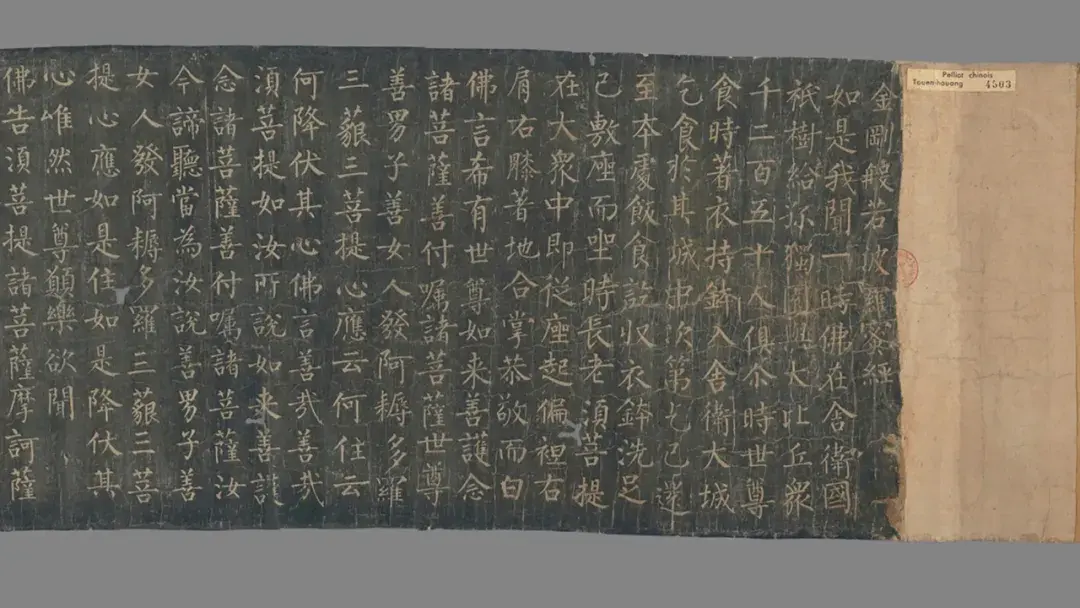 Pelliot chinois
Touen-houang 4503
金剛般若波羅蜜經
如是我聞一時佛在舍衛國
祇樹給孤獨園與大比丘衆
千二百五十人俱尒時世尊
食時著衣持鉢入舍衛大城
乞食於其城中次第乞已還
至本處飯食訖収衣鉢洗足
已敷座而坐時長老須菩提
在大衆中即從座起偏袒右
肩右膝著地合掌恭敬而白
佛言希有世尊如来善護念
諸菩薩善付嘱諸菩薩世尊
善男子善女人發阿耨多羅
三藐三菩提心應云何住云
何降伏其心佛言善哉善哉
須菩提如汝所說如来善護
念諸菩薩善付嘱諸菩薩汝
今諦聽當為汝說善男子善
女人發阿耨多羅三藐三菩
提心應如是住如是降伏其
心唯然世尊願樂欲聞
佛告須菩提諸菩薩摩訶薩